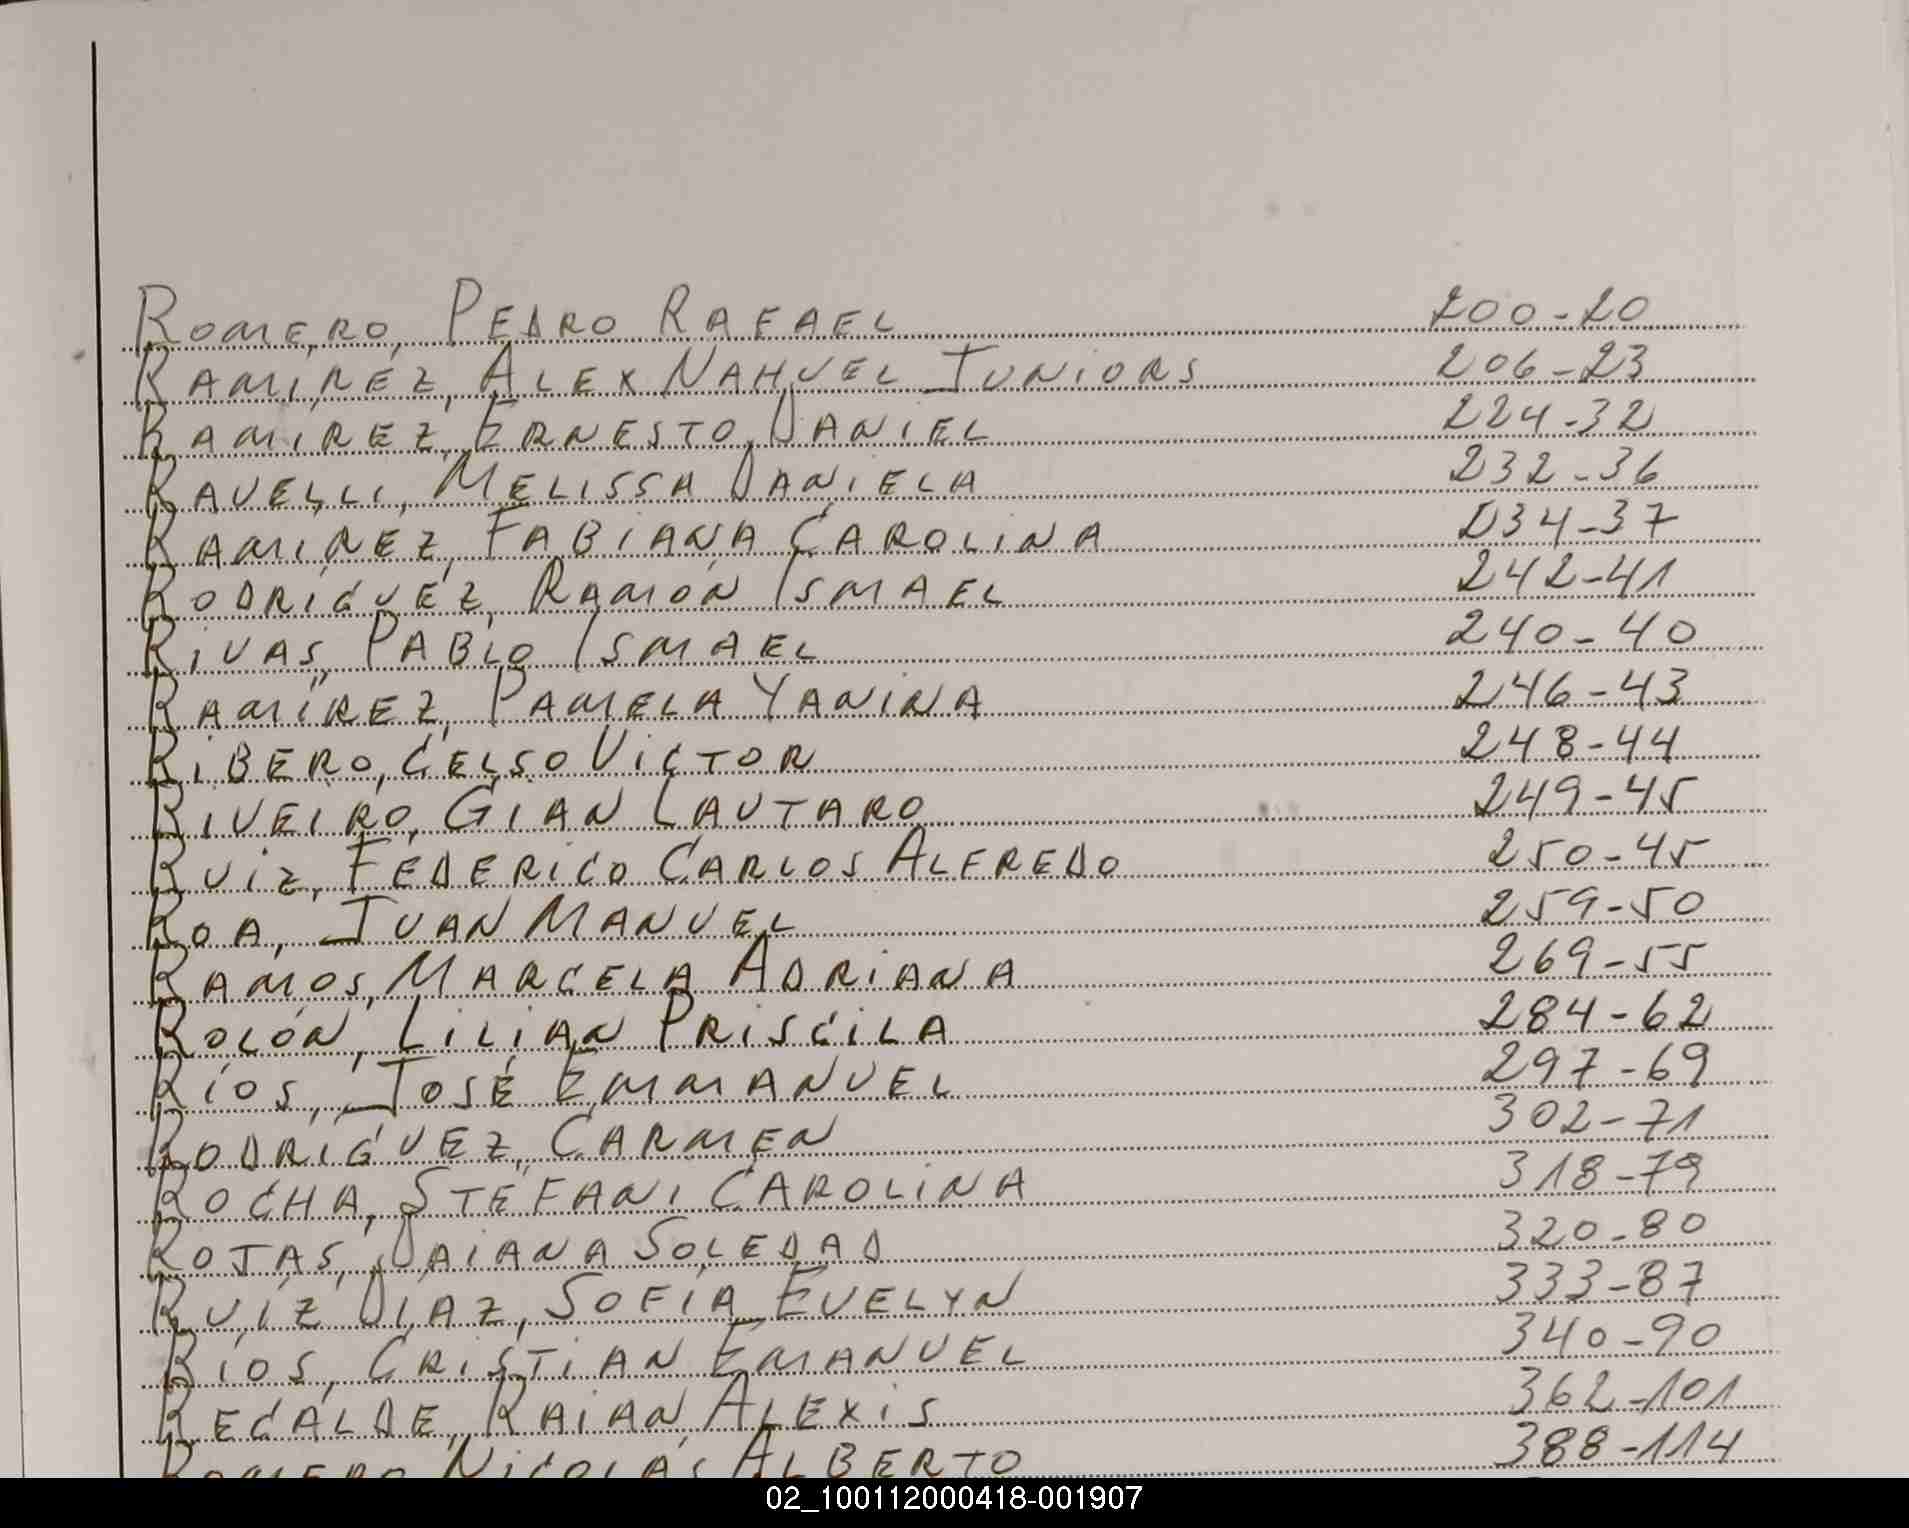 ROMERO, PEDRO RAFAEL 200-20
RAMIREZ, ALEX NAHUEL JUNIORS 206-23
RAMIREZ, ERNESTO DANIEL 224-32
RAVELLI, MELISSA DANIELA 232-36
RAMIREZ, FABIANA CAROLINA 234-37
RODRÍGUEZ, RAMÓN ISMAEL 242-41
RIVAS, PABLO ISMAEL 240-40
RAMÍREZ, PAMELA YANINA 246-43
RIBERO, CELSO VICTOR 248-44
RIVEIRO, GIAN LAUTARO 249-45
RUIZ, FEDERICO CARLOS ALFREDO 250-45
ROA, JUAN MANUEL 259-50
RAMOS, MARCELA ADRIANA 269-55
ROLÓN, LILIAN PRISCILA 284-62
RÍOS, JOSÉ EMMANUEL 297-69
RODRIGUEZ, CARMEN 302-71
ROCHA, STEFANI CAROLINA 318-79
ROJAS, DAIANA SOLEDAD 320-80
RUÍZ DIAZ, SOFÍA EVELYN 333-87
RÍOS, CRISTIAN EMANUEL 340-90
RECALDE, RAIAN ALEXIS 362-101
ROMERO, NICOLÁS ALBERTO 388-114
02_100112000418-001907